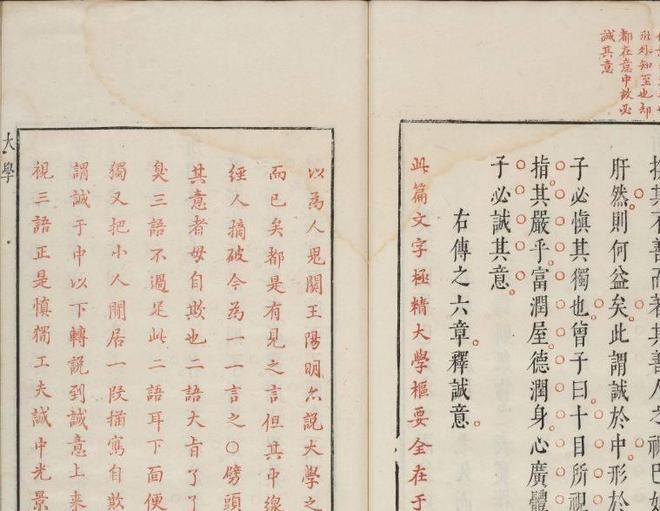 外知至也却
都在意中故必
誠其意
揜其不善而著其善人之視己如
肝然則何益矣此謂誠於中形於
子必慎其獨也曾子曰十目所視
指其嚴乎富潤屋德潤身心廣體
子必誠其意
右傳之六章釋誠意
此篇文字極精大學樞要全在于
以為人鬼關王陽明亦說大學之
而已矣都是有見之言但其中線
經人摘破今為一一言之○劈頭
其意者毋自欺也二語大旨了了
臭三語不過足此二語耳下面便
獨又把小人閒居一段描寫自欺
謂誠于中以下轉說到誠意上來
視三語正是慎獨工夫誠中光景
大學